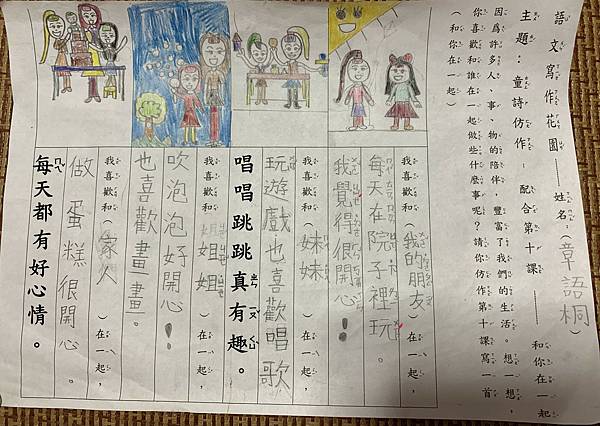 語文寫作花園——姓名：（章語桐）
主題：童詩仿作：配合第十課——和你在一起
因為許多人、事、物的陪伴，豐富了我們的生活。想一想，
你喜歡和誰在一起做些什麼事呢？請你仿作第十課寫一首
（和你在一起）
我喜歡和（我的朋友）在一起，
每天在院子裡玩。
我覺得很開心！
我喜歡和（妹妹）在一起，
玩遊戲也喜歡唱歌
唱唱跳跳真有趣。
我喜歡和（姐姐）在一起，
吹泡泡好開心！
也喜歡畫畫。
我喜歡和（家人）在一起，
做蛋糕很開心。
每天都有好心情。